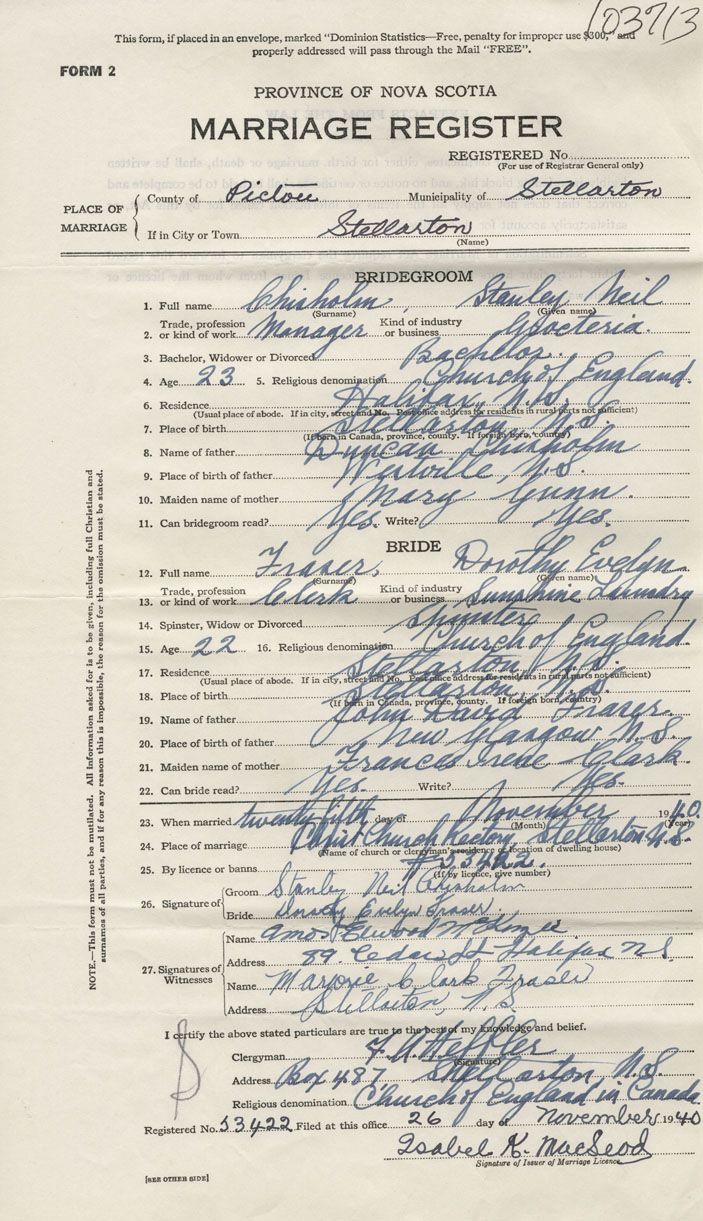 103713
This form, if placed in an envelope, marked "Dominion Statistics—Free, penalty for improper use $300," and
properly addressed will pass through the Mail "FREE".
FORM 2
PROVINCE OF NOVA SCOTIA
MARRIAGE REGISTER
REGISTERED No.
(For use of Registrar General only)
PLACE OF MARRIAGE
County of Pictou Municipality of Stellarton
If in City or Town Stellarton
(Name)
BRIDEGROOM
1. Full name Chisholm, Stanley Neil
(Surname) (Given name)
2. Trade, profession or kind of work Manager Kind of industry or business Groceteria.
3. Bachelor, Widower or Divorced Bachelor.
4. Age 23 5. Religious denomination Church of England.
6. Residence Halifax, N.S.
(Usual place of abode. If in city, street and No. Post office address for residents in rural parts not sufficient)
7. Place of birth Stellarton, N.S.
(If born in Canada, province, county. If foreign born, country)
8. Name of father Duncan Chisholm
9. Place of birth of father Westville, N.S.
10. Maiden name of mother Mary Gunn.
11. Can bridegroom read? Yes. Write? Yes.
BRIDE
12. Full name Fraser, Dorothy Evelyn
(Surname) (Given name)
13. Trade, profession or kind of work Clerk Kind of industry or business Sunshine Laundry
14. Spinster, Widow or Divorced Spinster
15. Age 22 16. Religious denomination Church of England.
17. Residence Stellarton, N.S.
(Usual place of abode. If in city, street and No. Post office address for residents in rural parts not sufficient)
18. Place of birth Stellarton, N.S.
(If born in Canada, province, county. If foreign born, country)
19. Name of father John David Fraser.
20. Place of birth of father New Glasgow N.S.
21. Maiden name of mother Frances Irene Clark
22. Can bride read? Yes. Write? Yes.
23. When married twenty fifth day of November 1940.
(Month) (Year)
24. Place of marriage Christ Church Rectory, Stellarton N.S.
(Name of church or clergyman's residence or location of dwelling house)
25. By licence or banns # 53422.
(If by licence, give number)
26. Signature of
Groom Stanley Neil Chisholm
Bride Dorothy Evelyn Fraser.
27. Signatures of Witnesses
Name Amos Elwood
Address 89. Cedar St Halifax N.S.
Name Marjorie Clark Fraser
Address Stellarton, N.S.
I certify the above stated particulars are true to the best of my knowledge and belief.
Clergyman
(Signature)
Address Box 487 Stellarton N.S.
Religious denomination Church of England in Canada
Registered No. 53422 Filed at this office 26 day of November 1940
Isabel K. MacLeod
Signature of Issuer of Marriage Licence
[SEE OTHER SIDE]
NOTE.—This form must not be mutilated. All information asked for is to be given, including full Christian and
surnames of all parties, and if for any reason this is impossible, the reason for the omission must be stated.